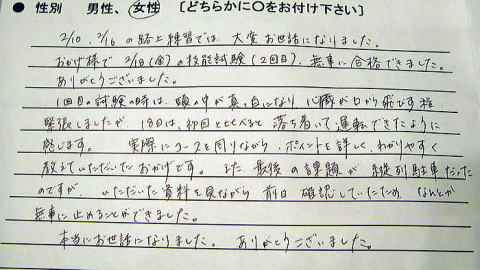 ● 性別 男性、女性 [どちらかに○をお付け下さい]
2/10、2/16 の路上練習では、大変お世話になりました。
おかげ様で 2/18(金)の技能試験(2回目)、無事に合格できました。
ありがとうございました。
1回目の試験の時は、頭の中が真っ白になり、心臓が口から飛び出す程
緊張しましたが 18日は、初回と比べると 落ち着いて運転できたように
感じます。 実際にコースを周りながら、ポイントを詳しく、わかりやすく
教えていただいたおかげです。また、最後の課題が 縦列駐車だった
のですが いただいた資料を見ながら 前日 確認していたため なんとか
無事に止めることができました。
本当にお世話になりました。 ありがとうございました。